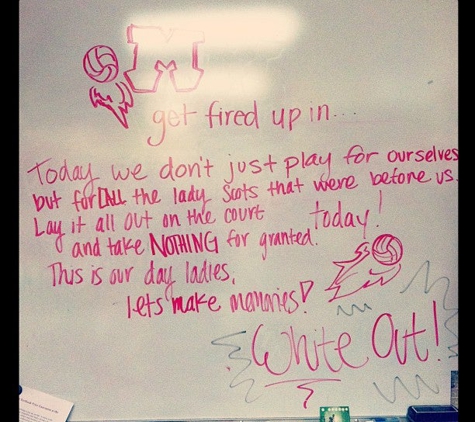 M
get fired up in...
Today we don't just play for ourselves
but for ALL the lady Scots that were before us.
Lay it all out on the court today!
and take NOTHING for granted.
This is our day ladies,
lets make memories!
White Out!